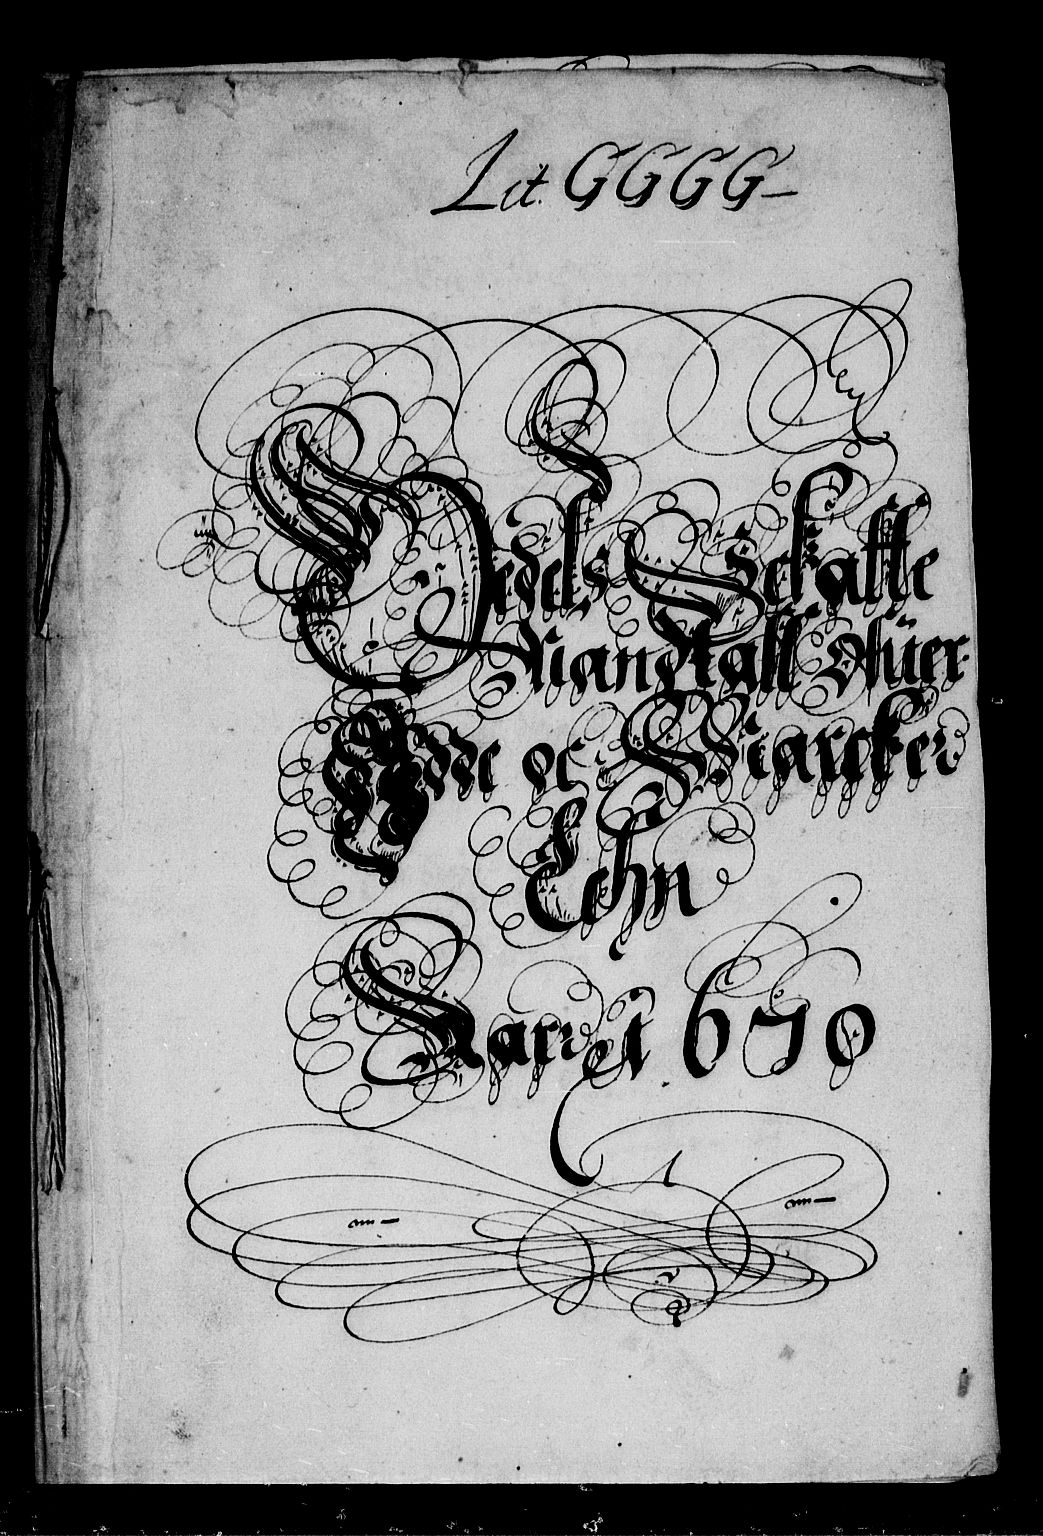 Lit. GGGG
Odels Schatte
Mandtall Offuer
Ide oc Marcker
Lehn
Aar 1670